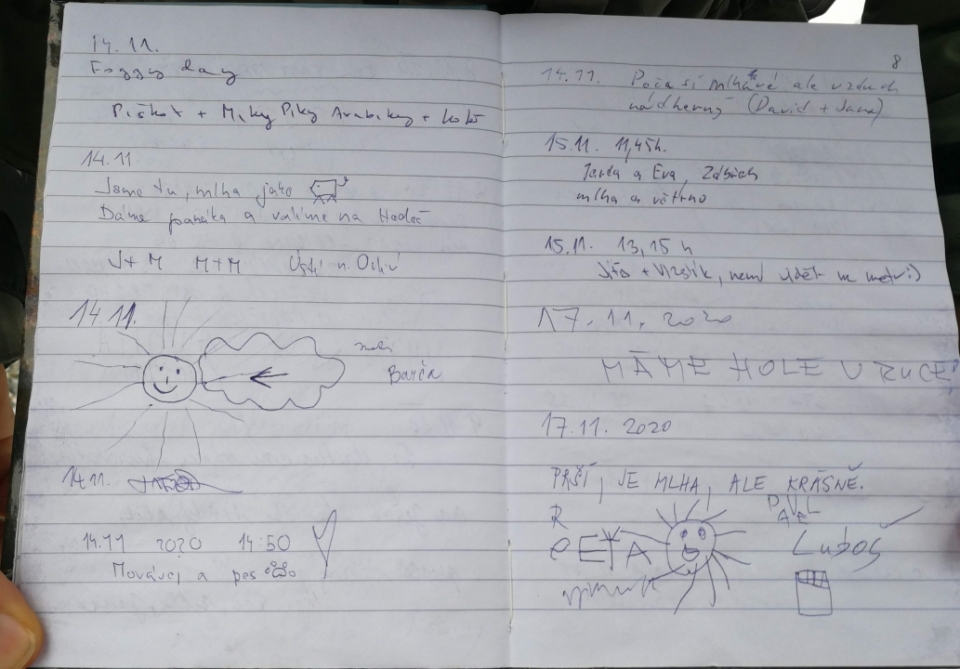 14.11.
Foggy day
Piškot + Miky Piky + koks
14.11
Jsme tu, mlha jako
Dáme panáka a valíme na Hadeč
J+M M+M Ústí n. Orlicí
14 11.
Barča
14.11.
14.11 2020 14:50
a pes
8
14.11. Počasí mlhavé ale vzduch
nádherný (David + Jana)
15.11. 11,45h.
Jarda a Eva,
mlha a větrno
15.11. 13,15 h
Jířa + , není vidět na metr:)
17.11.2020
MÁME HOLE V RUCE
17.11.2020
PRŠÍ, JE MLHA, ALE KRÁSNĚ.
PAVEL
R
PEŤA
Luboš